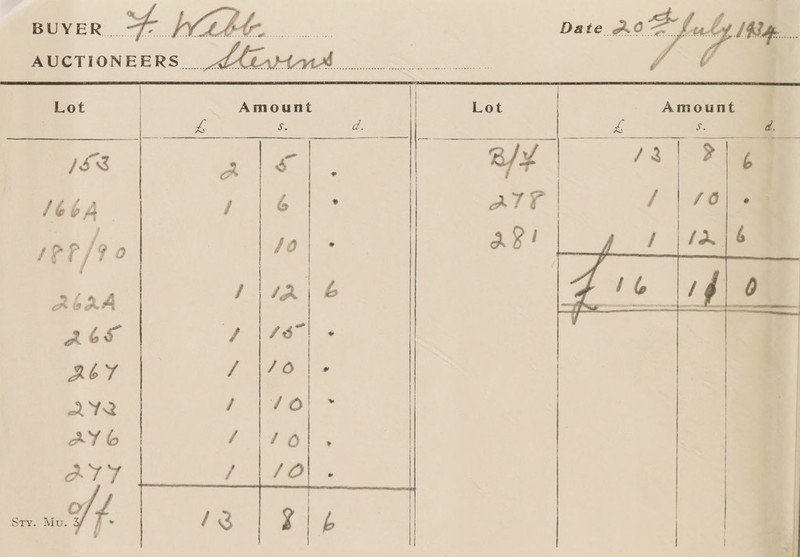 BUYER F. Webb.
Date 20th July 1934
AUCTIONEERS Stevens
Lot Amount
£ s. d.
153 2 5 •
166A 1 6 •
188/90 10 •
262A 1 12 6
265 1 15 •
267 1 10 •
273 1 10 •
276 1 10 •
277 1 10 •
Sty. Mu. 3 c/f. 13 8 6
Lot Amount
£ s. d.
B/F 13 8 6
278 1 10 •
281 1 12 6
£ 16 11 0